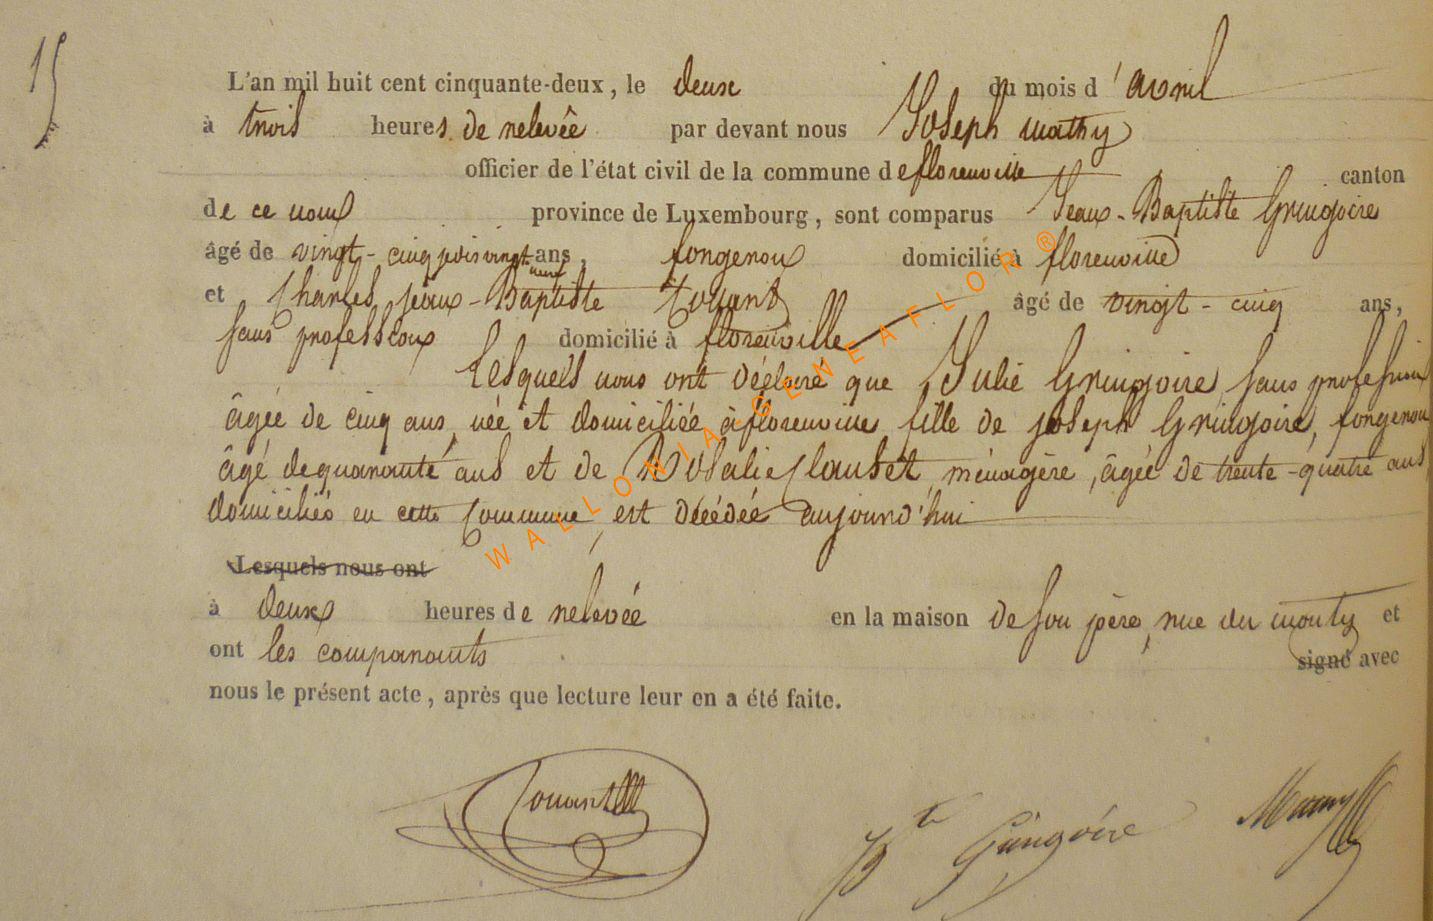 15
L'an mil huit cent cinquante-deux, le deux du mois d'avril
à trois heures de relevée par devant nous Joseph Mathy
officier de l'état civil de la commune de florenville canton
de ce nom province de Luxembourg, sont comparus Jean-Baptiste Gringoire
âgé de vingt-cinq puis vingt neuf ans, forgeron domicilié à florenville
et Charles, Jean-Baptiste Couant âgé de vingt-cinq ans,
sans profession domicilié à florenville
Lesquels nous ont déclaré que Julie Gringoire, sans profession
âgée de cinq ans, née et domiciliée à florenville fille de joseph Gringoire, forgeron
âgé de quarante ans et de Rosalie Clauset, ménagère, âgée de trente-quatre ans
domiciliés en cette Commune, est décédée aujourd'hui
Lesquels nous ont
à deux heures de relevée en la maison de son père, rue du et
ont les comparants signé avec
nous le présent acte, après que lecture leur en a été faite.
Couant
Bte Gringoire
WALLONIA-GENEAFLOR®